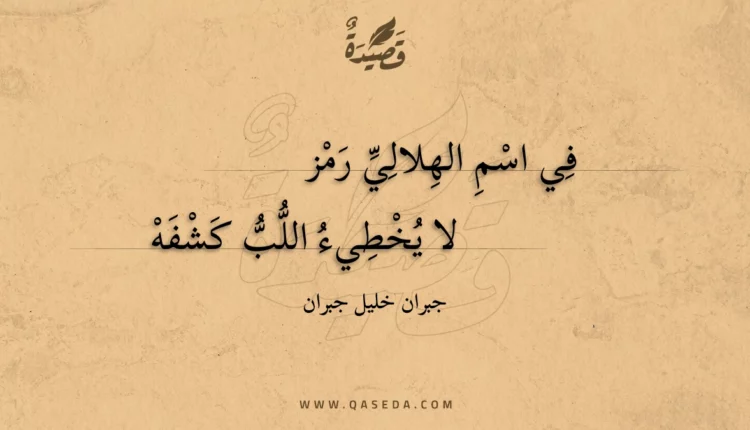 قَصِيْدَةٌ
فِي اسْمِ الهِلالِيِّ رَمْز
لا يُخْطِيءُ اللُّبُّ كَشْفَهْ
جبران خليل جبران
WWW.QASEDA.COM